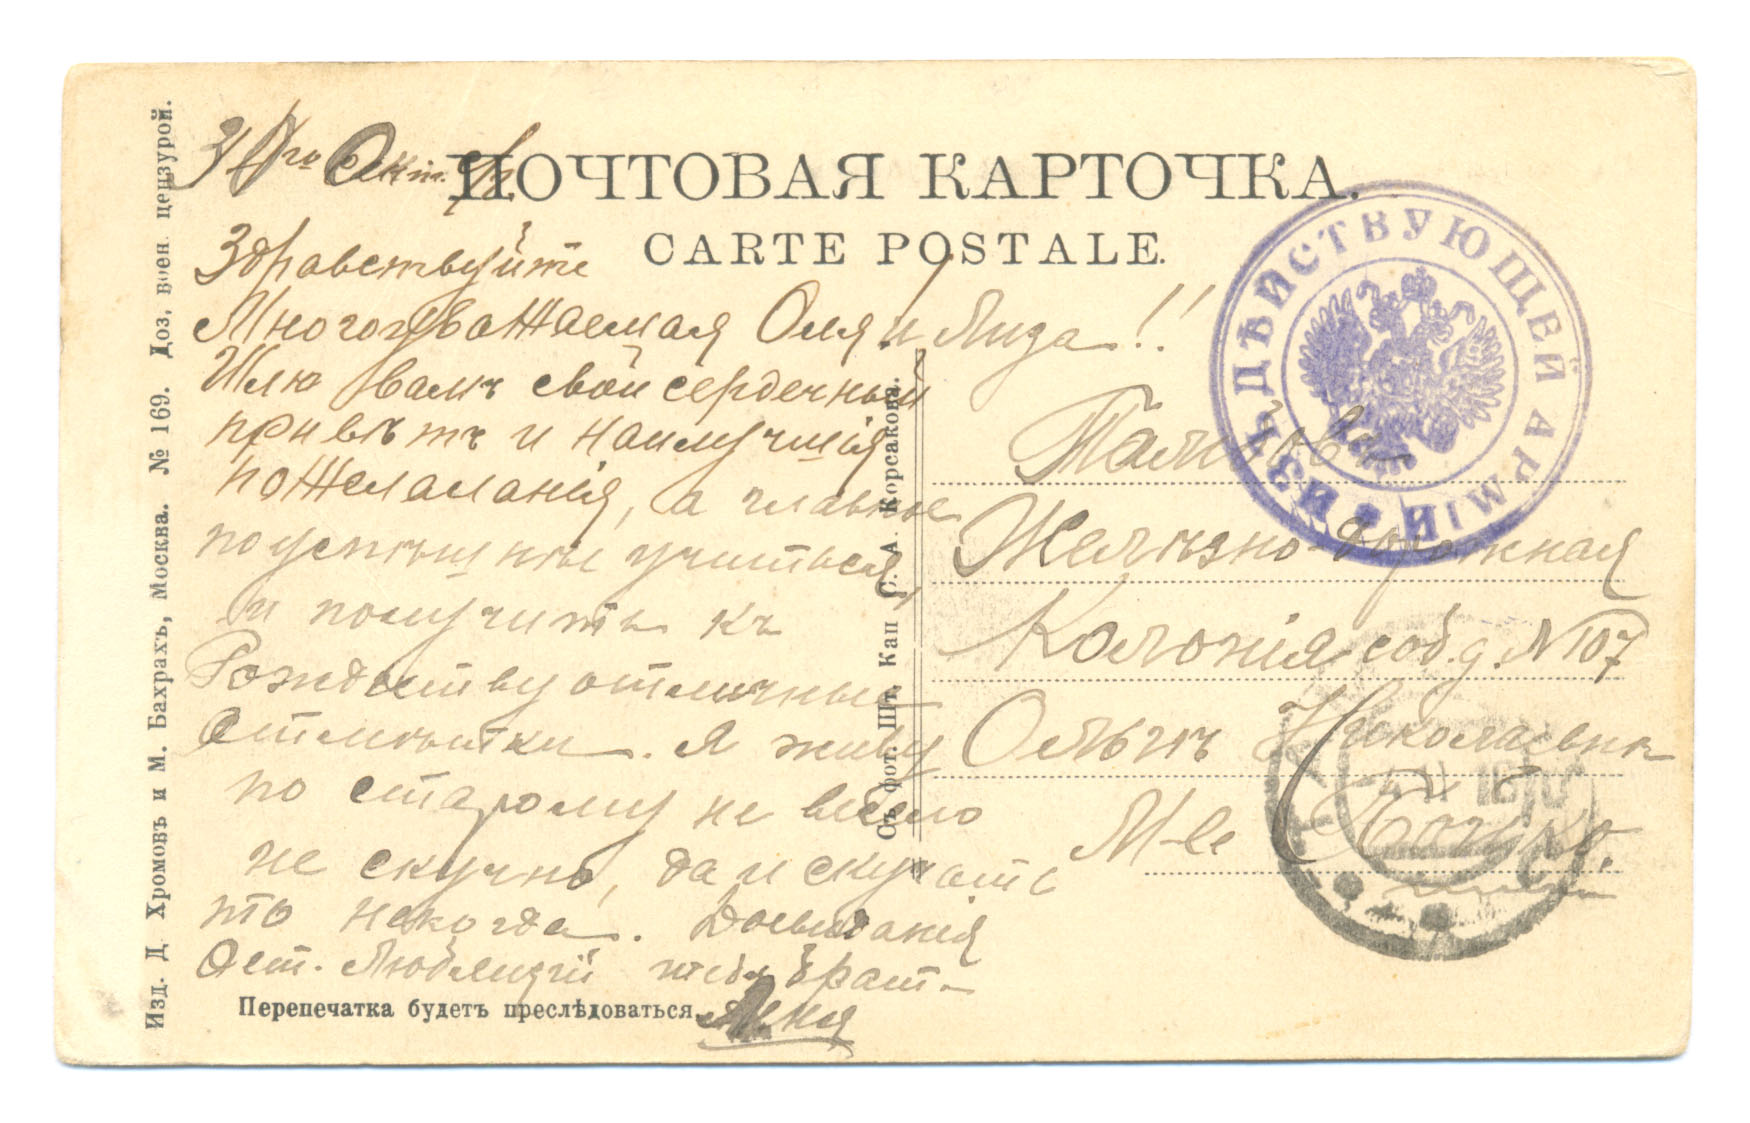 ПОЧТОВАЯ КАРТОЧКА.
CARTE POSTALE.
Изд. Д. Хромовъ и М. Бахрахъ, Москва. № 169. Доз. воен. цензурой.
Съ фот. Шт. Кап. С. А. Корсакова.
ИЗЪ ДѢЙСТВУЮЩЕЙ АРМІИ
30го Окт.
Здравствуйте
Многоуважаемая Оля и Лиза!!
Шлю вамъ свой сердечный
привѣтъ и наилучшія
пожеламанія, а главное
поуспѣшнѣе учиться,
и получить къ
Рождеству отличные
отмѣтки. Я живу
по старому не весело
не скучно, да и скучать
то некогда. Досвиданія
Ост. Любящій тебя Брат
Перепечатка будетъ преслѣдоваться.
Желѣзно-дорожная
Колонія соб. д. № 107
Ольгѣ Николаевнѣ
М-lle